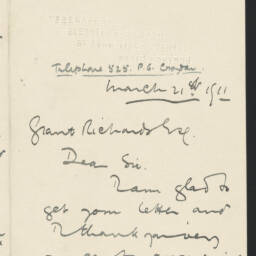 Telephone 525. P.O. Croydon.
March 21st 1911
Grant Richards Esq.
Dear Sir.
I am glad to
get your letter and
I thank you very